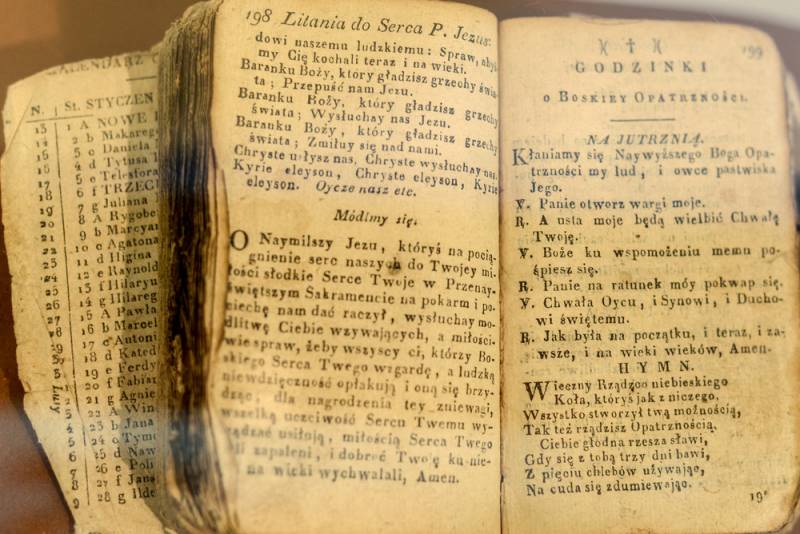 KALENDARZ
N. St. STYCZEN
13 1 A NOWE
14 2 b Makareg
15 3 c Daniela
16 4 d Tytusa
17 5 e Telesfora
18 6 f TRZECH
19 7 g Juliana
20 8 A Rygober
21 9 b Marcyan
22 10 c Agatona
23 11 d Higina
24 12 e Raynold
25 13 f Hilaryu
26 14 g Hilareg
27 15 A Pawła
28 16 b Marcel
29 17 c Antoni
30 18 d Kated
19 e Ferdy
20 f Fabian
21 g Agnie
22 A Win
23 b Jana
24 c Tymo
25 d Naw
26 e Poli
27 f Jana
28 g Ilde
Luty
198 Litania do Serca P. Jezus.
dowi naszemu ludzkiemu: Spraw, abyś
my Cię kochali teraz i na wieki.
Baranku Boży, który gładzisz grzechy świa-
ta; Przepuść nam Jezu.
Baranku Boży, który gładzisz grzechy
świata; Wysłuchay nas Jezu.
Baranku Boży, który gładzisz grzechy
świata; Zmiłuy się nad nami.
Chryste usłysz nas, Chryste wysłuchay nas.
Kyrie eleyson, Chryste eleyson, Kyrie
eleyson. Oycze nasz etc.
Módlmy się.
O Naymilszy Jezu, któryś na pocią-
gnienie serc naszych do Twojey mi-
łości słodkie Serce Twoje w Przenay-
świętszym Sakramencie na pokarm i po-
ciechę nam dać raczył, wysłuchay mo-
dlitwę Ciebie wzywających, a miłości-
wie spraw, żeby wszyscy ci, którzy Bo-
skiego Serca Twego wzgardę, a ludzką
niewdzięczność opłakują i oną się brzy-
dząc, dla nagrodzenia tey zniewagi,
wszelką uczciwość Sercu Twemu wy-
rządzać usiłują, miłością Serca Twego
zapaleni, i dobroć Twoję ku nie-
na wieki wychwalali, Amen.
199
)( † )(
GODZINKI
O BOSKIEY OPATRZNOŚCI.
NA JUTRZNIĄ.
Kłaniamy się Naywyższego Boga Opa-
trzności my lud, i owce pastwiska
Jego.
V. Panie otworz wargi moje.
R. A usta moje będą wielbić Chwałę
Twoję.
V. Boże ku wspomożeniu memu po-
śpiesz się.
R. Panie na ratunek móy pokwap się.
V. Chwała Oycu, i Synowi, i Ducho-
wi świętemu.
R. Jak była na początku, i teraz, i za-
wsze, i na wieki wieków, Amen.
HYMN.
Wieczny Rządzco niebieskiego
Koła, któryś jak z niczego,
Wszystko stworzył twą możnością,
Tak też rządzisz Opatrznością.
Ciebie głodna rzesza sławi,
Gdy się z tobą trzy dni bawi,
Z pięciu chlebów używając,
Na cuda się zdumiewając.